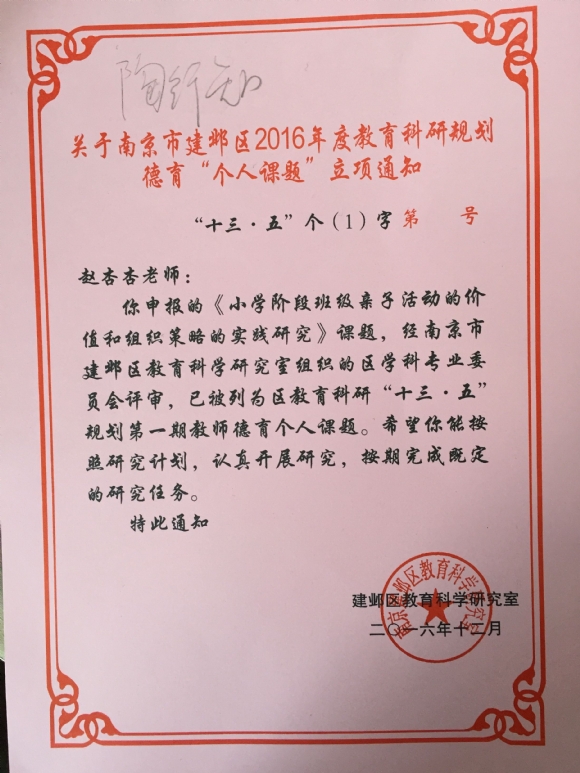 陶行知
关于南京市建邺区2016年度教育科研规划
德育“个人课题”立项通知
“十三·五”个(1)字 第 号
赵杏杏老师：
你申报的《小学阶段班级亲子活动的价
值和组织策略的实践研究》课题，经南京市
建邺区教育科学研究室组织的区学科专业委
员会评审，已被列为区教育科研“十三·五”
规划第一期教师德育个人课题。希望你能按
照研究计划，认真开展研究，按期完成既定
的研究任务。
特此通知
南京建邺区教育科学研究室
建邺区教育科学研究室
二〇一六年十二月